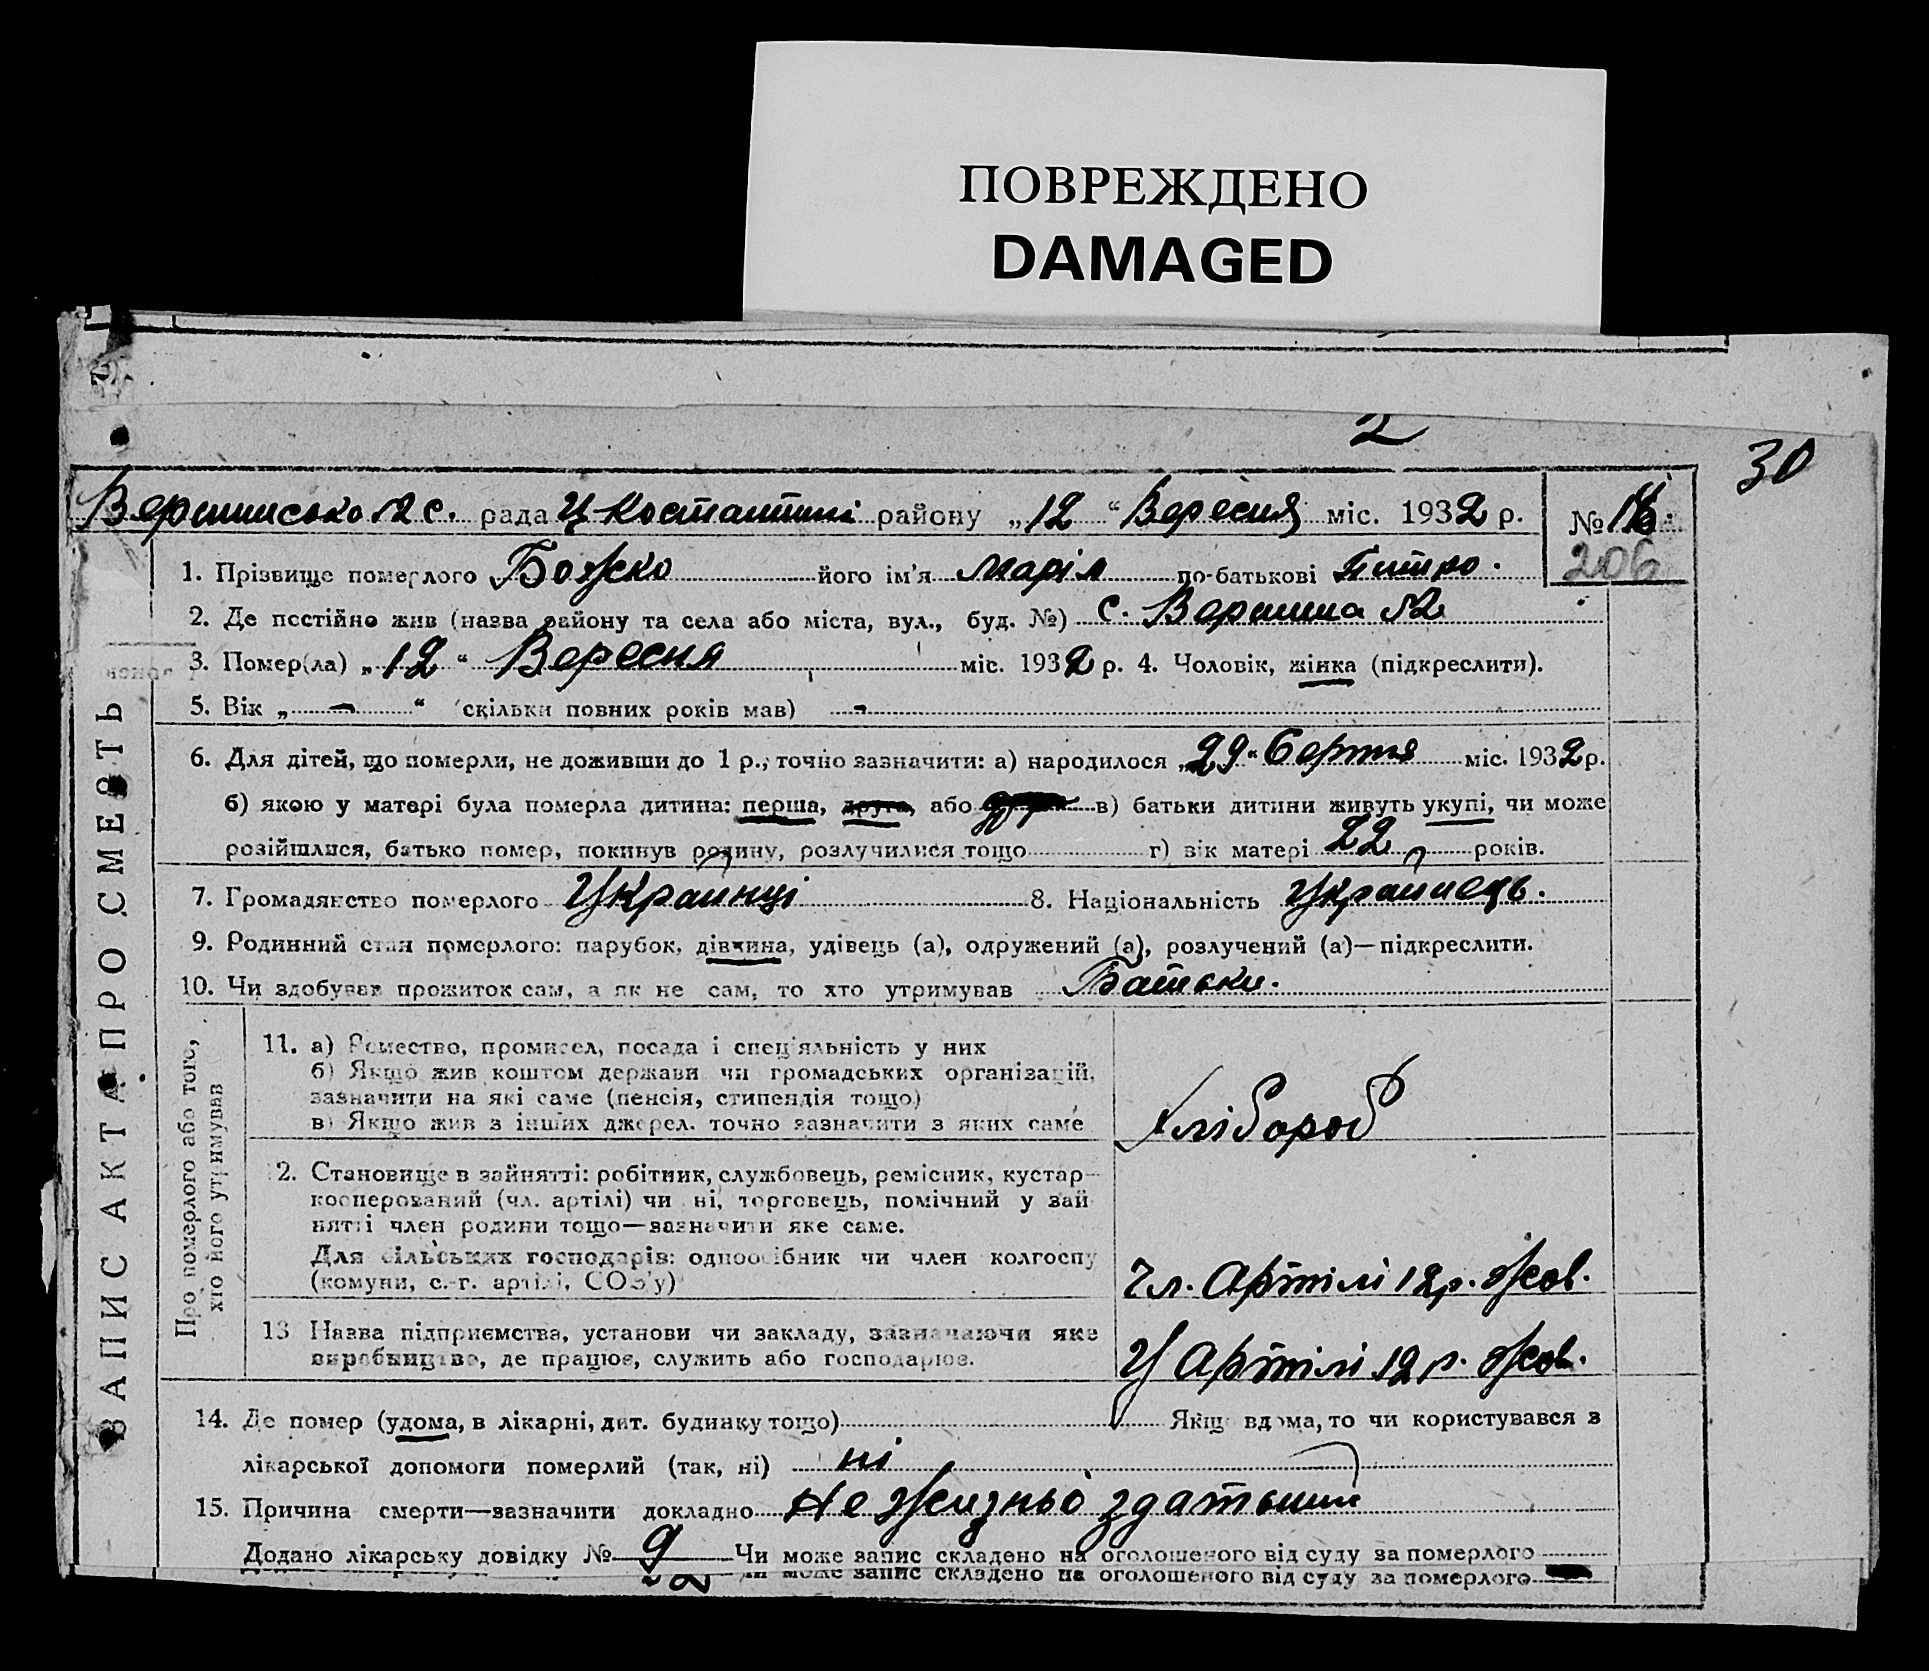 ПОВРЕЖДЕНО
DAMAGED
2
30
Вершинсько №2 с. рада У Костантині району „12“ Вересня міс. 1932 р. №
206
1. Прізвище померлого Божко його ім'я Марія по-батькові Питро.
2. Де постійно жив (назва району та села або міста, вул., буд. №) с. Вершина №2
3. Помер(ла) „12“ Вересня міс. 1932 р. 4. Чоловік, жінка (підкреслити).
5. Вік „ – “ (скільки повних років мав) -
6. Для дітей, що померли, не доживши до 1 р., точно зазначити: а) народилося „29“ Серпня міс. 1932 р.
б) якою у матері була померла дитина: перша, друга, або в) батьки дитини живуть укупі, чи може
розійшлися, батько помер, покинув родину, розлучилися тощо г) вік матері 22 років.
7. Громадянство померлого Українці 8. Національність Українець.
9. Родинний стан померлого: парубок, дівчина, удівець (а), одружений (а), розлучений (а)—підкреслити.
10. Чи здобував прожиток сам, а як не сам, то хто утримував Батьки.
ЗАПИС АКТА ПРО СМЕРТЬ
Про померлого або того,
хто його утримував
11. а) Ремество, промисел, посада і спеціяльність у них
б) Якщо жив коштом держави чи громадських організацій,
зазначити на які саме (пенсія, стипендія тощо)
в) Якщо жив з інших джерел. точно зазначити з яких саме
Хлібороб
12. Становище в зайнятті: робітник, службовець, ремісник, кустар-
кооперований (чл. артілі) чи ні, торговець, помічний у зай
нятті член родини тощо—зазначити яке саме.
Для сільських господарів: одноосібник чи член колгоспу
(комуни, с.-г. артілі, СОЗ'у)
чл. Артілі 12 р. Жов.
13 Назва підприємства, установи чи закладу, зазначаючи яке
виробництво, де працює, служить або господарює.
У Артілі 12 р. Жов.
14. Де помер (удома, в лікарні, дит. будинку тощо) Якщо вдома, то чи користувався з
лікарської допомоги померлий (так, ні) ні
15. Причина смерти—зазначити докладно Не жизньо здатьний
Додано лікарську довідку № 9 Чи може запис складено на оголошеного від суду за померлого
чи може запис складено на оголошеного від суду за померлого